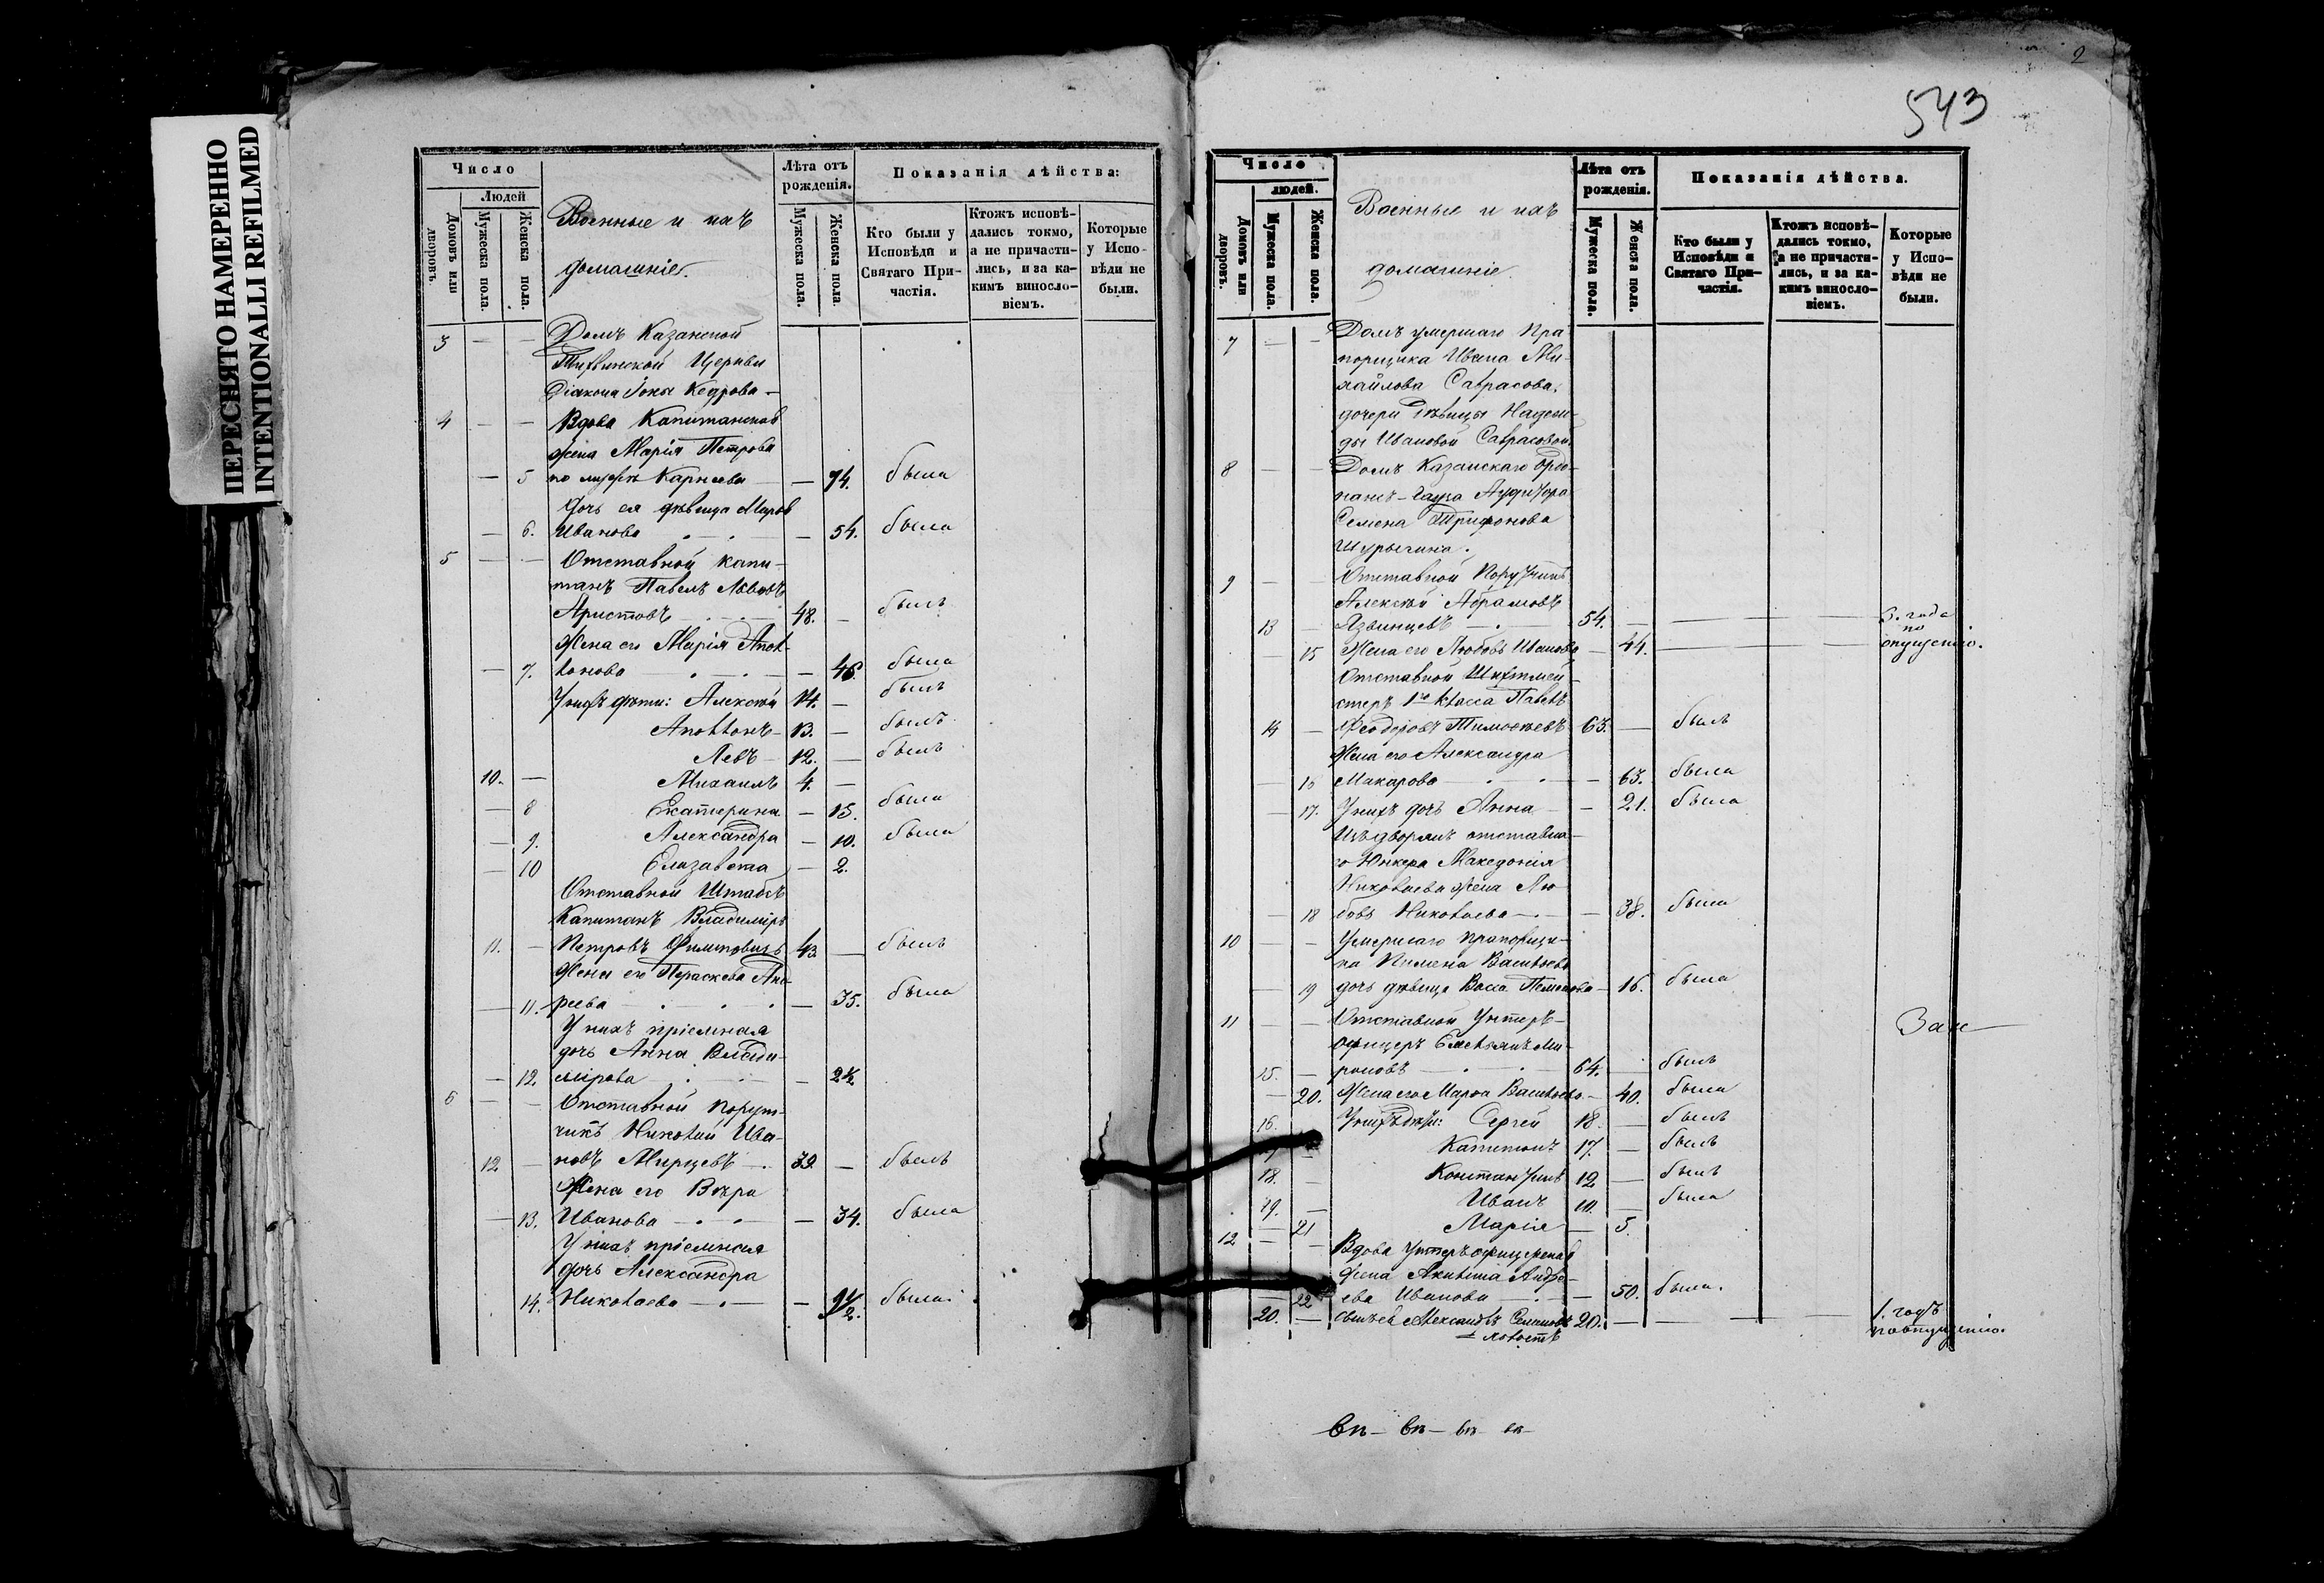 ПЕРЕСНЯТО НАМЕРЕННО
INTENTIONALLI REFILMED
Число
Людей
Домовъ или дворовъ.
Мужеска пола.
Женска пола.
Военные и ихъ
домашніе.
Лѣта отъ рожденія.
Мужеска пола.
Женска пола.
Показанія дѣйства:
Кто были у Исповѣди и Святаго Причастія.
Ктожъ исповѣдались токмо, а не причастились, и за какимъ винословіемъ.
Которые у Исповѣди не были.
3 — — Домъ Казанской
Тихвинской Церкви
Діакона Іоны Кедрова —
4 — — Вдова Капитанская
жена Марія Петрова
— 5 по мужѣ Карнѣева — 74. была
Дочь ея дѣвица
— 6. Иванова — 54. была
5 — — Отставной Капи-
танъ Павелъ Львовъ
Аристовъ 48. — былъ
Жена его Марія Апол-
— 7. лонова — 46. была
У нихъ дѣти: Алексѣй 14. — былъ
Аполлонъ — 13. — былъ
Левъ — 12. — былъ
10. — Михаилъ 4. —
— 8 Екатерина — 15. была
— 9. Александра — 10. была
— 10 Елизавета — 2.
Отставной Штабсъ
Капитанъ Владиміръ
11. — Петровъ 43. — былъ
Жена его Параскева Анд-
— 11. реева — 35. была
У нихъ пріемная
дочь Анна Влади-
— 12. мірова — 2½.
6 — — Отставной Поруч-
чикъ Николай Ива-
12 — новъ 39. — былъ
Жена его Вѣра
— 13. Иванова — 34. была
У нихъ пріемная
дочь Александра
14. Николаева — 9½. была.
2
543
Число
людей.
Домовъ или дворовъ.
Мужеска пола.
Женска пола.
Военные и ихъ
домашніе.
Лѣта отъ рожденія.
Мужеска пола.
Женска пола.
Показанія дѣйства.
Кто были у Исповѣди и Святаго Причастія.
Ктожъ исповѣдались токмо, а не причастились, и за какимъ винословіемъ.
Которые у Исповѣди не были.
7 — — Домъ умершаго Пра-
порщика Ивана Ми-
хайлова Саврасова,
дочери дѣвицы Надеж-
ды Ивановой Саврасовой.
8 — — Домъ Казанскаго Ордо-
нансъ-Гауза Аудитора
Семена Трифонова
Шурыгина.
9 — — Отставной Поручикъ
Алексѣй Абрамовъ
13 — Язвинцевъ — 54. — — — 3. года
по
— 15 Жена его Любовь Иванова — 44. — — опущенію.
Отставной Шихтмей-
стеръ 1го класса Павелъ
14 — Ѳеодоровъ Тимоѳеевъ 63. — былъ
Жена его Александра
— 16 Макарова — 63. была
— 17. У нихъ дочь Анна — 21. была
Изъ дворянъ отставна-
го Юнкера Македонія
Николаева жена Лю-
— 18 бовь Николаева — 38. была
10 — — Умершаго Прапорщи-
ка Пимена Васильева
— 19 дочь дѣвица — 16. была
11 — — Отставной Унтеръ-
офицеръ Емельянъ Ми- Зак—
15. — роновъ 64. — былъ
— 20. Жена его Марѳа Васильева — 40. была
16. У нихъ дѣти: Сергей 18. — былъ
17 — Капитонъ 17. — былъ
18. — Константинъ 12 — былъ
19. — Иванъ 10. — была
— 21 Марія — 5.
12 — — Вдова Унтеръ офицерская
жена Акилина Андре-
— 22 ева Иванова — 50. была.
20. — Сынъ ея Александръ Семеновъ 20. — — — — 1. годъ
холостъ по опущенію.
вп— вп— вп— вп—